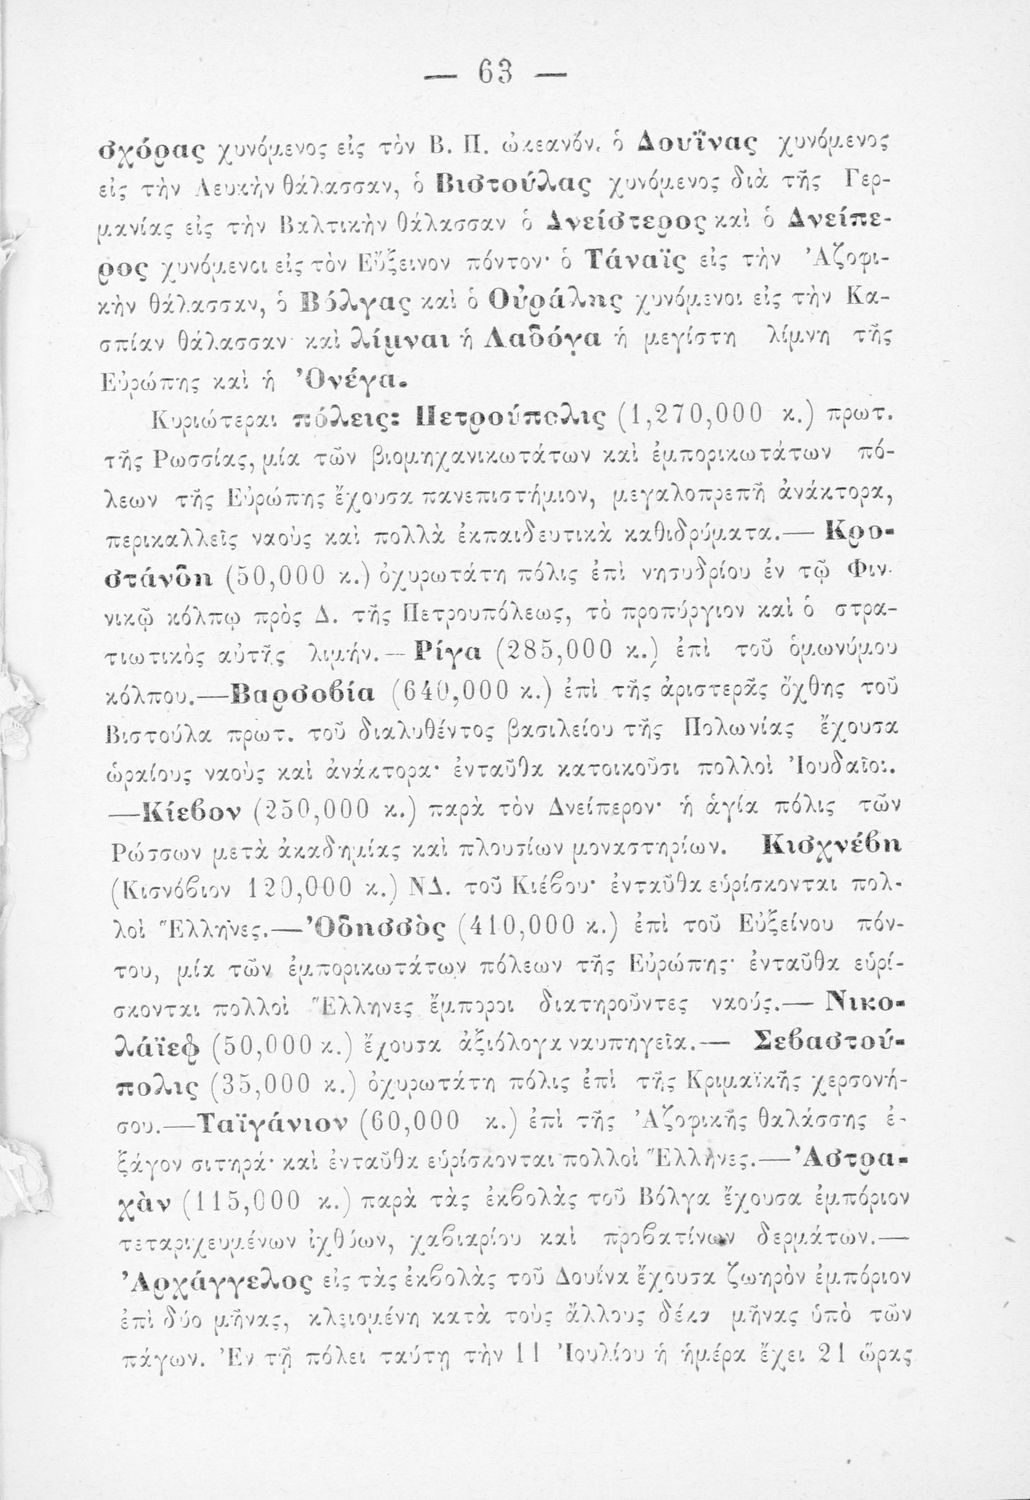 — 63 —
σχόρας χυνόμενος εἰς τὸν Β. Π. ὠκεανόν, ὁ Δουΐνας χυνόμενος
εἰς τὴν Λευκὴν θάλασσαν, ὁ Βιστούλας χυνόμενος διὰ τῆς Γερ-
μανίας εἰς τὴν Βαλτικὴν θάλασσαν ὁ Δνείστερος καὶ ὁ Δνείπε-
ρος χυνόμενοι εἰς τὸν Εὔξεινον πόντον· ὁ Τάναϊς εἰς τὴν Ἀζοφι-
κὴν θάλασσαν, ὁ Βόλγας καὶ ὁ Οὐράλης χυνόμενοι εἰς τὴν Κα-
σπίαν θάλασσαν καὶ λίμναι ἡ Λαδόγα ἡ μεγίστη λίμνη τῆς
Εὐρώπης καὶ ἡ Ὀνέγα.
Κυριώτεραι πόλεις: Πετρούπολις (1,270,000 κ.) πρωτ.
τῆς Ρωσσίας, μία τῶν βιομηχανικωτάτων καὶ ἐμπορικωτάτων πό-
λεων τῆς Εὐρώπης ἔχουσα πανεπιστήμιον, μεγαλοπρεπῆ ἀνάκτορα,
περικαλλεῖς ναοὺς καὶ πολλὰ ἐκπαιδευτικὰ καθιδρύματα.— Κρο-
στάνδη (50,000 κ.) ὀχυρωτάτη πόλις ἐπὶ νησυδρίου ἐν τῷ Φιν-
νικῷ κόλπῳ πρὸς Δ. τῆς Πετρουπόλεως, τὸ προπύργιον καὶ ὁ στρα-
τιωτικὸς αὐτῆς λιμήν.— Ρίγα (285,000 κ.) ἐπὶ τοῦ ὁμωνύμου
κόλπου.—Βαρσοβία (640,000 κ.) ἐπὶ τῆς ἀριστερᾶς ὄχθης τοῦ
Βιστούλα πρωτ. τοῦ διαλυθέντος βασιλείου τῆς Πολωνίας ἔχουσα
ὡραίους ναοὺς καὶ ἀνάκτορα· ἐνταῦθα κατοικοῦσι πολλοὶ Ἰουδαῖοι.
—Κίεβον (250,000 κ.) παρὰ τὸν Δνείπερον· ἡ ἁγία πόλις τῶν
Ρώσσων μετὰ ἀκαδημίας καὶ πλουσίων μοναστηρίων. Κισχνέβη
(Κισνόβιον 120,000 κ.) ΝΔ. τοῦ Κιέβου· ἐνταῦθα εὑρίσκονται πολ-
λοὶ Ἕλληνες.—Ὀδησσὸς (410,000 κ.) ἐπὶ τοῦ Εὐξείνου πόν-
του, μία τῶν ἐμπορικωτάτων πόλεων τῆς Εὐρώπης· ἐνταῦθα εὑρί-
σκονται πολλοὶ Ἕλληνες ἔμποροι διατηροῦντες ναούς.— Νικο-
λάϊεφ (50,000 κ.) ἔχουσα ἀξιόλογα ναυπηγεῖα.— Σεβαστού-
πολις (35,000 κ.) ὀχυρωτάτη πόλις ἐπὶ τῆς Κριμαϊκῆς χερσονή-
σου.—Ταϊγάνιον (60,000 κ.) ἐπὶ τῆς Ἀζοφικῆς θαλάσσης ἐ-
ξάγον σιτηρά· καὶ ἐνταῦθα εὑρίσκονται πολλοὶ Ἕλληνες.—Ἀστρα-
χὰν (115,000 κ.) παρὰ τὰς ἐκβολὰς τοῦ Βόλγα ἔχουσα ἐμπόριον
τεταριχευμένων ἰχθύων, χαβιαρίου καὶ προβατίνων δερμάτων.—
Ἀρχάγγελος εἰς τὰς ἐκβολὰς τοῦ Δουΐνα ἔχουσα ζωηρὸν ἐμπόριον
ἐπὶ δύο μῆνας, κλειομένη κατὰ τοὺς ἄλλους δέκα μῆνας ὑπὸ τῶν
πάγων. Ἐν τῇ πόλει ταύτῃ τὴν 11 Ἰουλίου ἡ ἡμέρα ἔχει 21 ὥρας